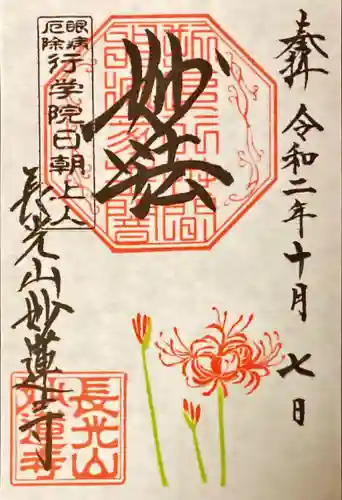 奉拝
令和二年十月七日
妙法
眼病
厄除
行学院日朝上人
長光山妙蓮寺
長光山
妙蓮寺